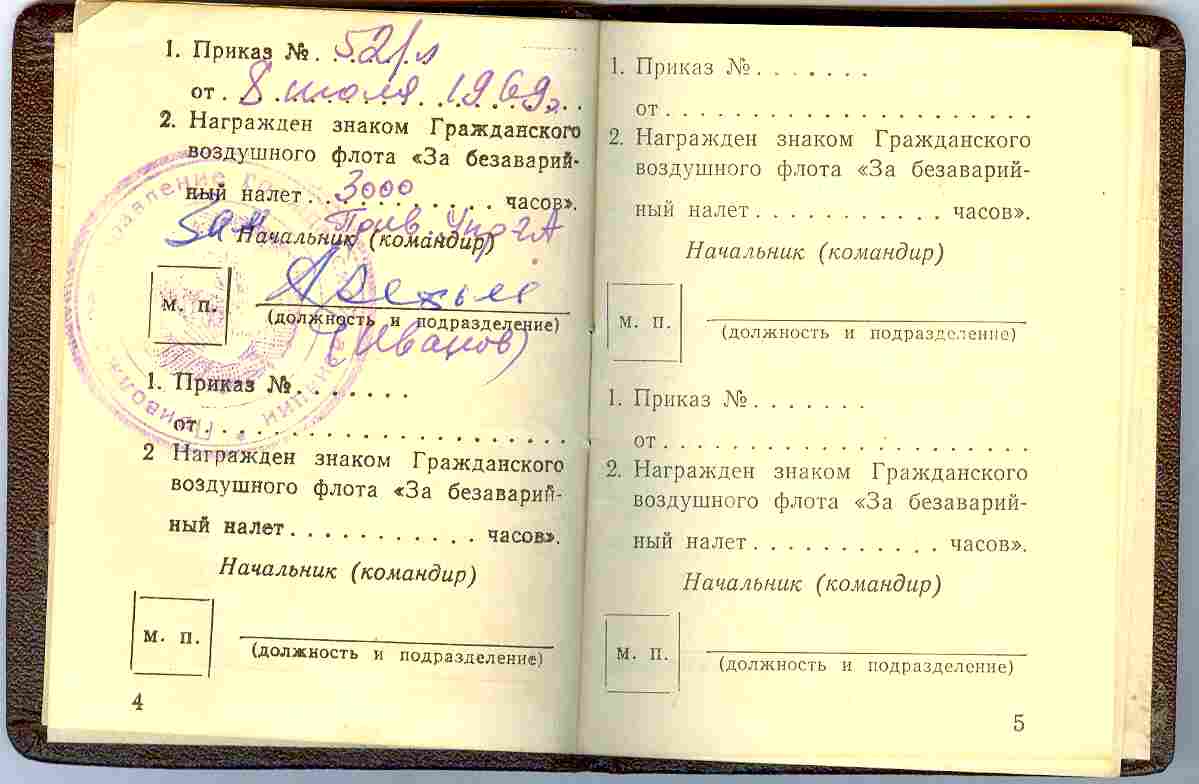 1. Приказ №. 52/л
от. 8 июля 1969г.
2. Награжден знаком Гражданского
воздушного флота «За безаварий-
ный налет. 3000 . . . . . . часов».
Зам. Прив. УпрГА
Начальник (командир)
м. п.
(должность и подразделение)
(Иванов)
1. Приказ №. . . . . . .
от. . . . . . . . . . . . . . . . . . . . .
2 Награжден знаком Гражданского
воздушного флота «За безаварий-
ный налет. . . . . . . . . . . часов».
Начальник (командир)
м. п.
(должность и подразделение)
4
1. Приказ №. . . . . . .
от. . . . . . . . . . . . . . . . . . . . .
2. Награжден знаком Гражданского
воздушного флота «За безаварий-
ный налет. . . . . . . . . . . часов».
Начальник (командир)
м. п.
(должность и подразделение)
1. Приказ №. . . . . . .
от. . . . . . . . . . . . . . . . . . . . .
2. Награжден знаком Гражданского
воздушного флота «За безаварий-
ный налет. . . . . . . . . . . часов».
Начальник (командир)
м. п.
(должность и подразделение)
5